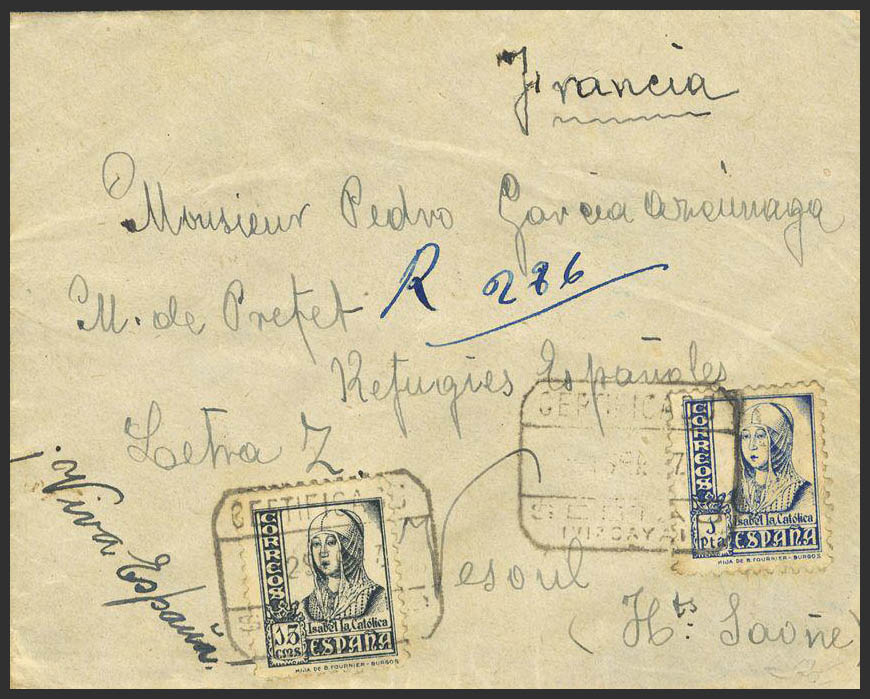 Francia
Monsieur Pedro Garcia
M. de Prefet
R 286
Refugies Españoles
Letra Z.
¡Viva España!
Vesoul
(Hts. Saone)
CERTIFICADO
VIZCAYA
CORREOS
1 Pta
Isabel la Católica
ESPAÑA
HIJA DE B. FOURNIER - BURGOS
CERTIFICADO
CORREOS
15 cms
Isabel la Católica
ESPAÑA
HIJA DE B. FOURNIER - BURGOS